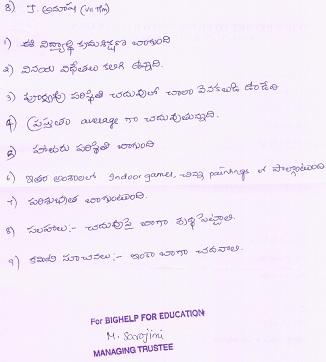 3) J. అనూష (VII క్లా)
1) ఈ విద్యార్థి క్రమశిక్షణ బాగుంది
2) వినయ విధేయతలు కలిగి ఉన్నది.
3) పూర్వపు పరిస్థితి చదువులో చాలా వెనకబడి ఉండేది
4) ప్రస్తుతం average గా చదువుతున్నది.
5) హాజరు పరిస్థితి బాగుంది
6) ఇతర అంశాలలో Indoor games, చిన్న paintings లో పాల్గొంటుంది
7) పరిశుభ్రత బాగుంటుంది.
8) సలహాలు:- చదువుపై బాగా శ్రద్ధ పెట్టాలి.
9) కమిటీ సూచనలు:- ఇంకా బాగా చదవాలి.
For BIGHELP FOR EDUCATION
M. Sarojini
MANAGING TRUSTEE